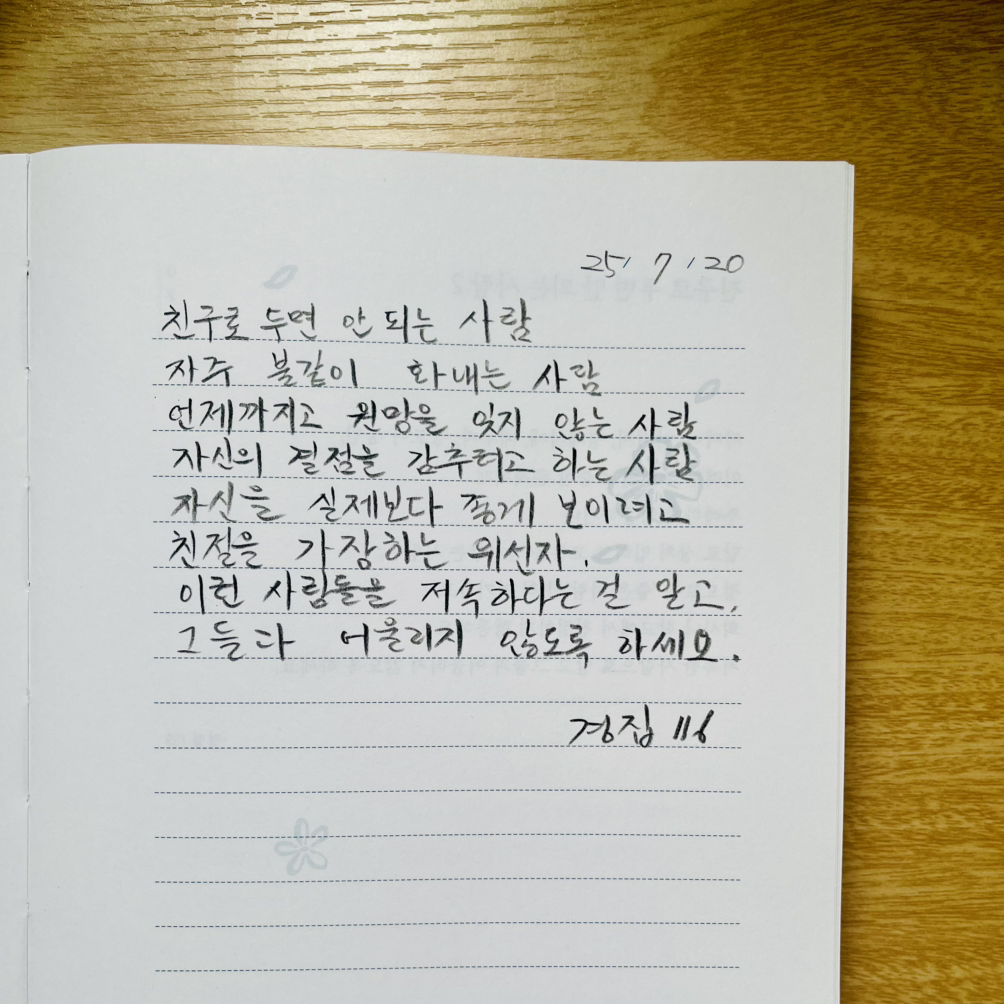 25' 7 '20
친구로 두면 안 되는 사람
자주 불같이 화내는 사람
언제까지고 원망을 잊지 않는 사람
자신의 결점을 감추려고 하는 사람
자신을 실제보다 좋게 보이려고
친절을 가장하는 위선자.
이런 사람들을 저속하다는 걸 알고,
그들과 어울리지 않도록 하세요.
경집 116